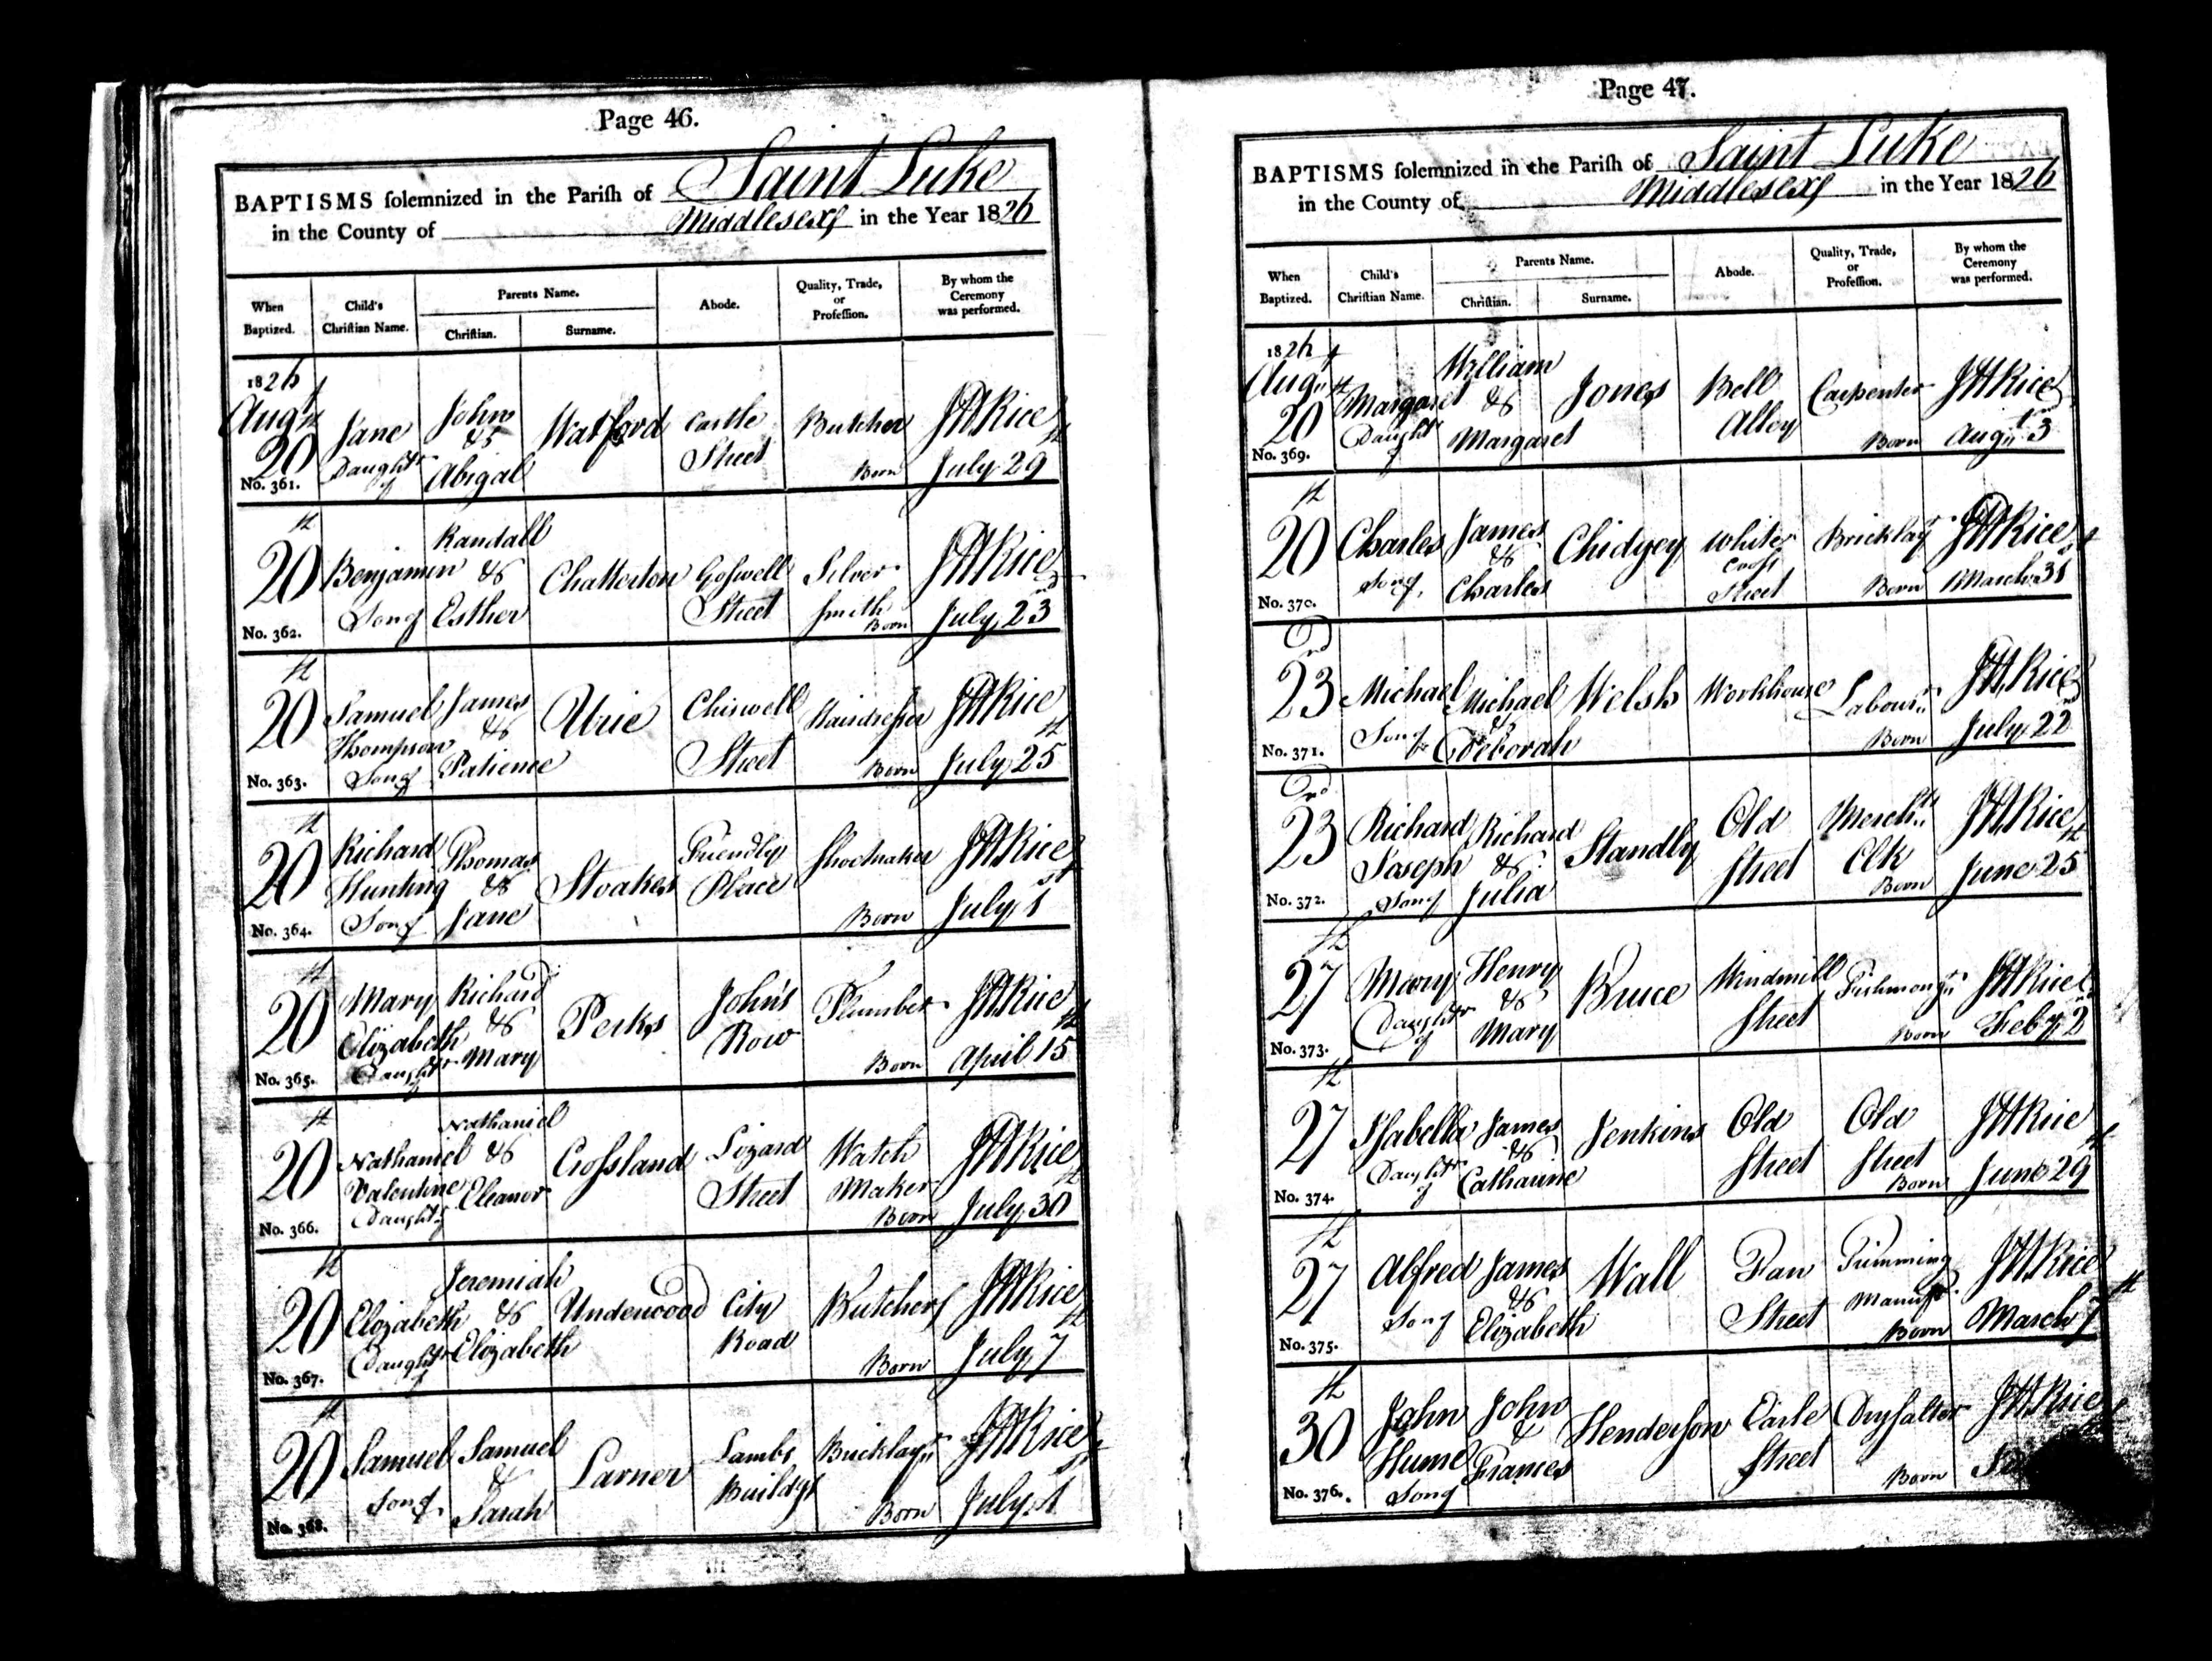 Page 46.
BAPTISMS solemnized in the Parish of Saint Luke
in the County of Middlesex in the Year 1826
When Baptized. Child's Christian Name. Parents Name. Christian. Surname. Abode. Quality, Trade, or Profession. By whom the Ceremony was performed.
1826
Augt 20th Jane Daughtr of John & Abigal Watford Castle Street Butcher Born JH Rice July 29th
No. 361.
20th Benjamin Son of Randall & Esther Chatterton Goswell Street Silver Smith Born JH Rice July 23rd
No. 362.
20th Samuel Thompson Son of James & Patience Urie Chiswell Street Hairdresser Born JH Rice July 25th
No. 363.
20th Richard Hunting Son of Thomas & Jane Stoakes Friendly Place Shoemaker Born JH Rice July 1st
No. 364.
20th Mary Elizabeth Daughtr of Richard & Mary Perks John's Row Plumber Born JH Rice April 15th
No. 365.
20th Nathaniel Valentine Daught of Nathaniel & Eleanor Crossland Lizard Street Watch Maker Born JH Rice July 30th
No. 366.
20th Elizabeth Daughtr of Jeremiah & Elizabeth Underwood City Road Butcher Born JH Rice July 7th
No. 367.
20th Samuel Son of Samuel & Sarah Larner Lambs Buildgs Bricklayr Born JH Rice July 1st
No. 368.
Page 47.
BAPTISMS solemnized in the Parish of Saint Luke
in the County of Middlesex in the Year 1826
When Baptized. Child's Christian Name. Parents Name. Christian. Surname. Abode. Quality, Trade, or Profession. By whom the Ceremony was performed.
1826
Augt 20th Margaret Daughtr of William & Margaret Jones Bell Alley Carpenter Born JH Rice Augt 3
No. 369.
20th Charles Son of James & Charles Chidgey White Cross Street Bricklayr Born JH Rice March 31st
No. 370.
23rd Michael Son of Michael & Deborah Welsh Workhouse Labourr Born JH Rice July 22nd
No. 371.
23rd Richard Joseph Son of Richard & Julia Standly Old Street Merchts Clk Born JH Rice June 25th
No. 372.
27th Mary Daughtr of Henry & Mary Bruce Windmill Street Fishmongr Born JH Rice Feby 2nd
No. 373.
27th Isabella Daughtr of James & Catharine Jenkins Old Street Old Street Born JH Rice June 29th
No. 374.
27th Alfred Son of James & Elizabeth Wall Tan Street Trimming Manufr. Born JH Rice March 7th
No. 375.
30th John Hume Son of John & Frances Henderson Earle Street Drysalter Born JH Rice
No. 376.